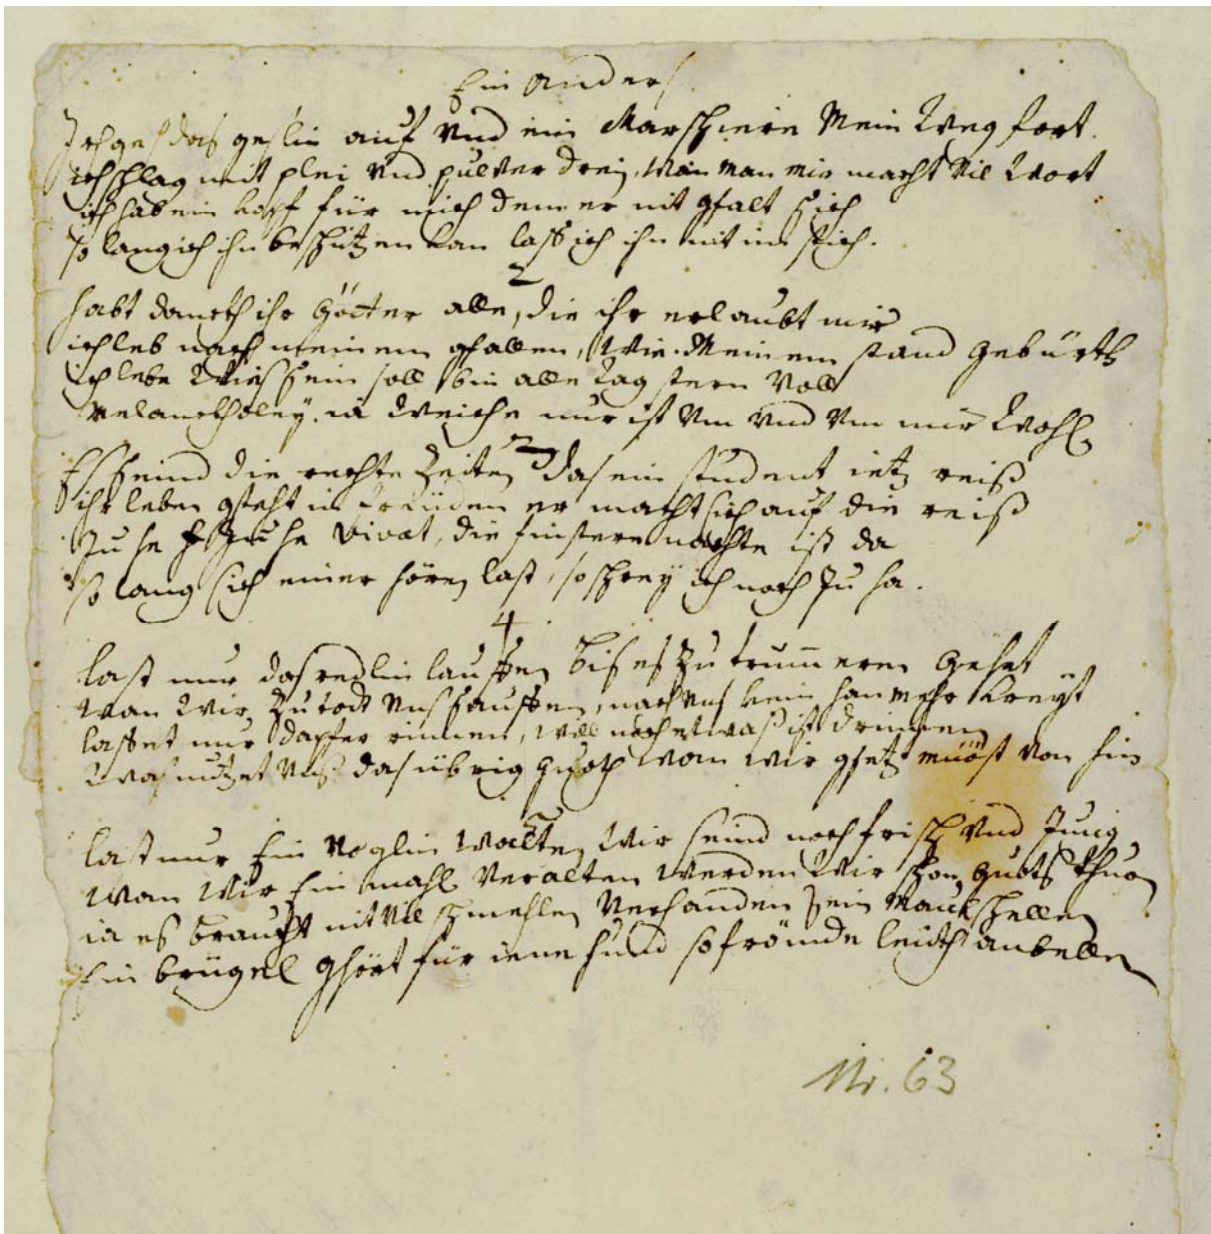 Ein anders
Ich geh das geßlin auf vnd ein Marschiere Mein Weg fort.
ich schlag mit plei vnd pulver drein, wan man mir macht vil Wort
ich hab ein kopf für mich dem er nit gfalt
so lang ich ihn beschützen kan lass ich ihn nit im stich.
2
habt danckh ihr Götter alle, die ihr erlaubt mir
ich leb nach meinem gfallen, Wie Meinem stand gebürth
ich lebe Wieß sein soll bin alle tag stern Voll
Melancholey weiche nur ist vm vnd vm mir Wohl
3
Eß seind die rechte Zeiten das ein student ietz reiß
ihr leben gsteht in freüden er macht sich auf die reiß
Ju he Ju he vivat, die finstere nachte ist da
so lang sich einer hören last, so schrey ich noch Ju ha.
4
last nur das redlin lauffen biß es zu trummeren gehet
wan Wir zu todt vnß sauffen, nach vnß kein han mehr kreyt
lasset nur dapfer rinnen, will noch etwaß ist drinnen
Was nutzet vnß das übrig guoth wan wir müöst von hin
5
last nur Ein Voglin walten Wir seind noch frisch vnd Jung
wan Wir Ein mahl veralten werden Wir schon guots thuon
ia es braucht nit vil schmehlen verhanden sein
Ein brügel ghört für iene hund so frömde leüth anbellen
Nr. 63